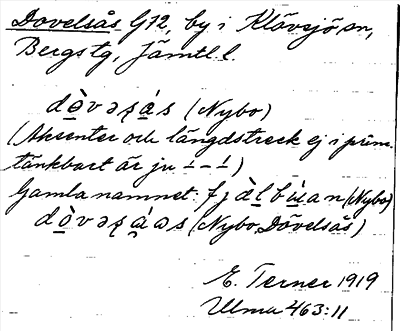 Dovelsås G72, by i Klövsjö sn,
Bergs tg, Jämtl. l.
dò̱vəʂá̱s (Nybo)
(Aksenter och längdstreck ej i prim.
tänkbart är ju -́ - -́)
Gamla namnet: fjàḻbú̱an (Nybo)
dò̱vəʂá̱əs (Nybo, Dövelsås)
E. Terner 1919
Ulma 463:11